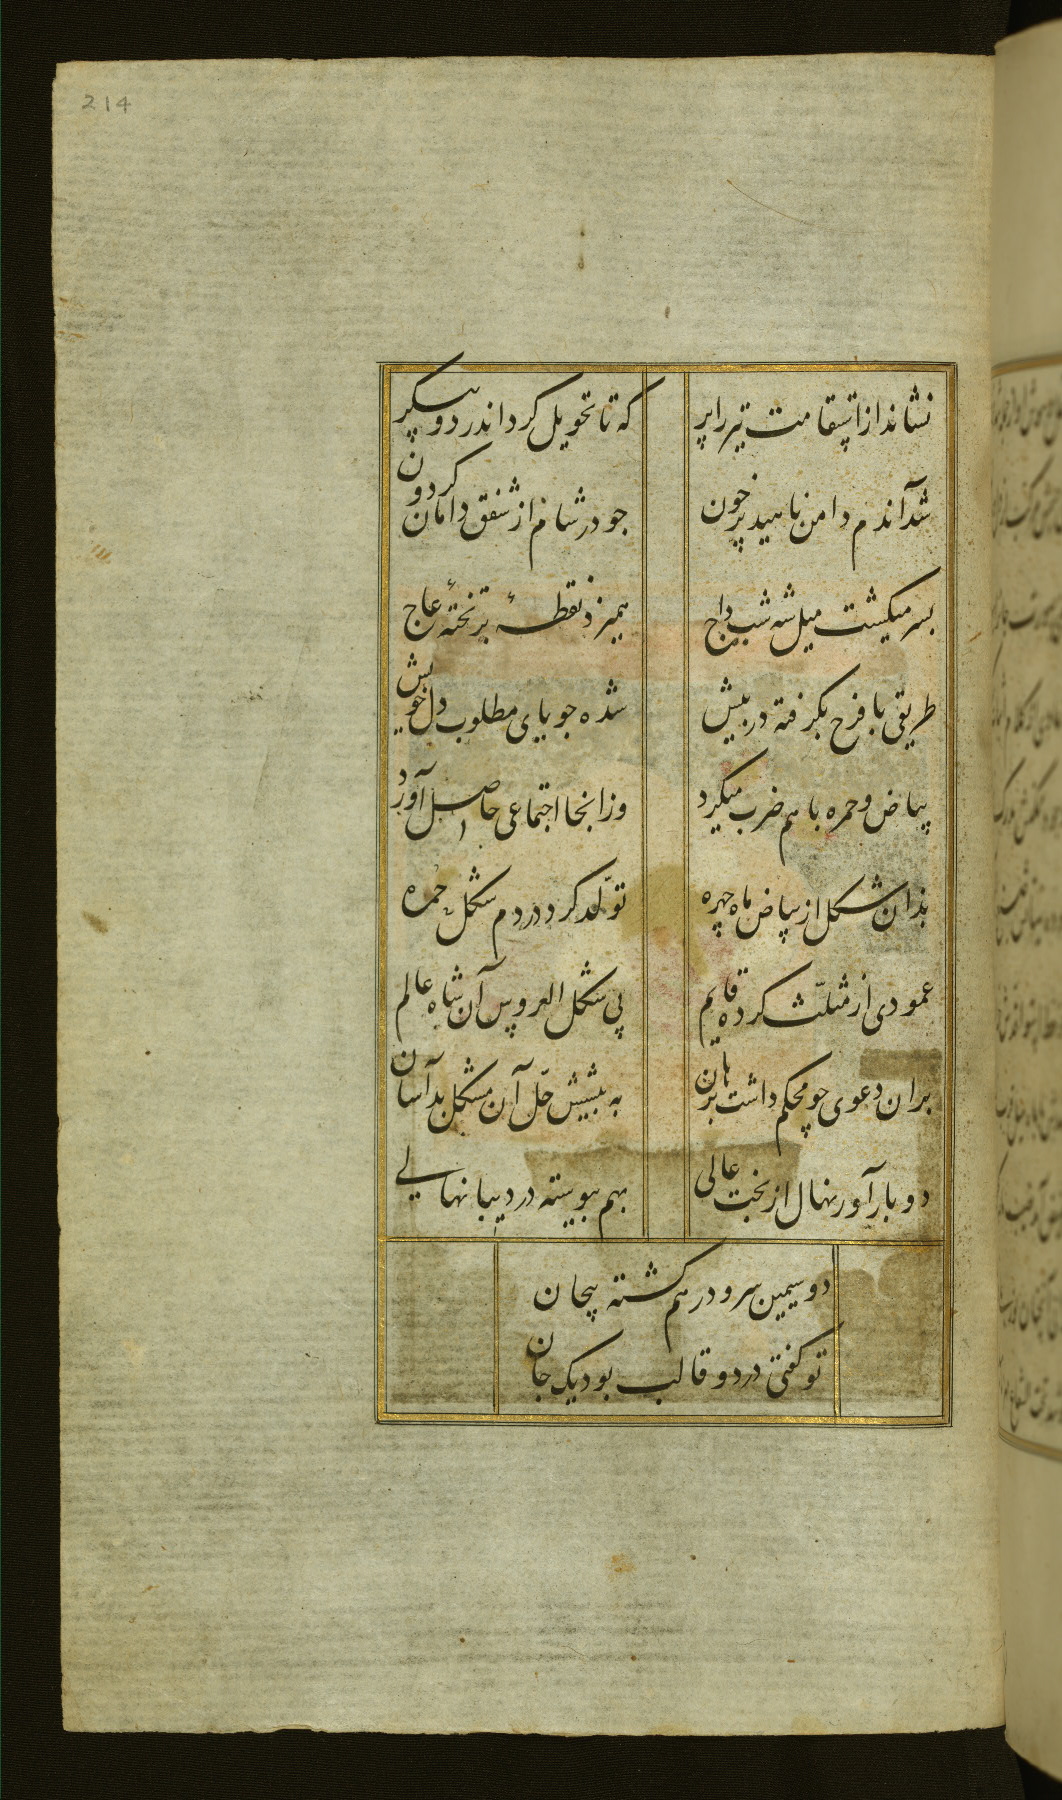 214
نشاند از استقامت تیر را پر
که تا تحویل کرد اندر دو پیکر
شد آندم دامن ناهید پر خون
جو در شام از شفق دامان کردون
بسر میکشت میل شه شب داج
همیزد نقطهٔ بر تختهٔ عاج
طریقی با فرح بکرفته در پیش
شده جویای مطلوب دل خویش
بیاض و حمره باهم ضرب میکرد
وزانجا اجتماعی حاصل آورد
بدان شکل از بیاض ماه چهره
تولّد کرد در دم شکل حمره
عمودی از مثلّث کرده قایم
پی شکل العروس آن شاه عالم
بران دعوی چو محکم داشت برهان
به پیشش حلّ آن مشکل بد آسان
دو بارآور نهال از بخت عالی
بهم پیوسته در دیبا نهالی
دو سیمین سرو درهم کشته پیچان
تو کفتی در دو قالب بود یک جان